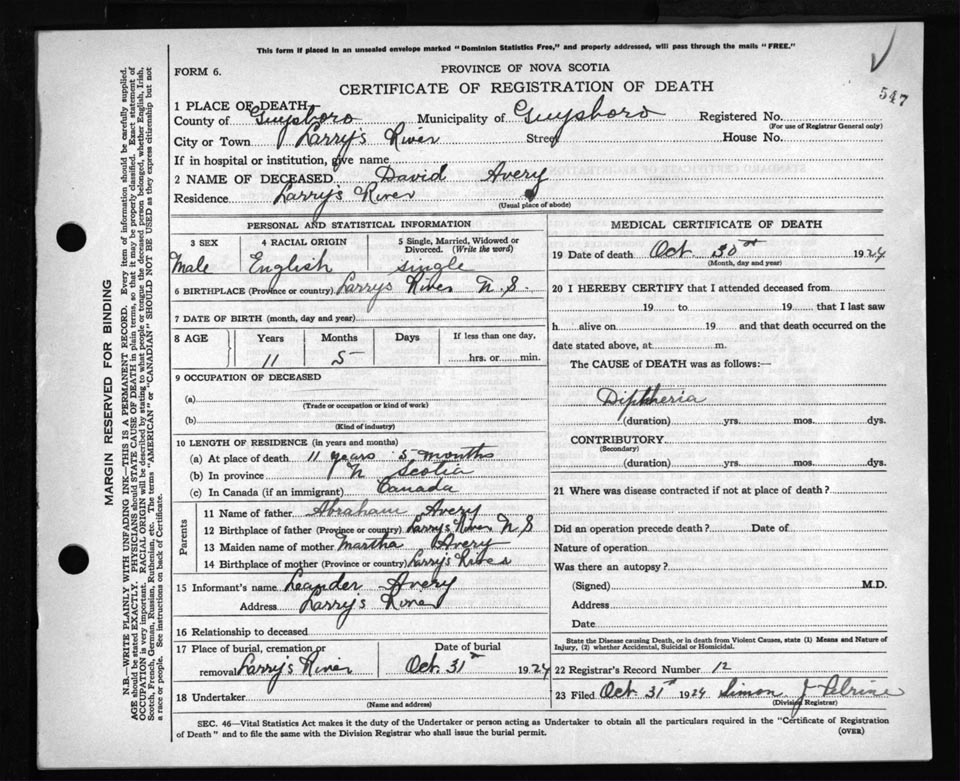 This form if placed in an unsealed envelope marked "Dominion Statistics Free," and properly addressed, will pass through the mails "FREE."
FORM 6.
PROVINCE OF NOVA SCOTIA
CERTIFICATE OF REGISTRATION OF DEATH
547
1 PLACE OF DEATH
County of Guysboro Municipality of Guysboro Registered No.
(For use of Registrar General only)
City or Town Larry's River Street House No.
If in hospital or institution, give name
2 NAME OF DECEASED David Avery
Residence Larry's River
(Usual place of abode)
PERSONAL AND STATISTICAL INFORMATION
3 SEX 4 RACIAL ORIGIN 5 Single, Married, Widowed or Divorced. (Write the word)
Male English single
6 BIRTHPLACE (Province or country) Larrys River N.S.
7 DATE OF BIRTH (month, day and year)
8 AGE Years Months Days If less than one day,
11 5 hrs. or min.
9 OCCUPATION OF DECEASED
(a)
(Trade or occupation or kind of work)
(b)
(Kind of industry)
10 LENGTH OF RESIDENCE (in years and months)
(a) At place of death 11 years 5 months
(b) In province N Scotia
(c) In Canada (if an immigrant) Canada
Parents
11 Name of father Abraham Avery
12 Birthplace of father (Province or country) Larry's River N S
13 Maiden name of mother Martha Avery
14 Birthplace of mother (Province or country) Larry's River
15 Informant's name Leander Avery
Address Larry's River
16 Relationship to deceased
17 Place of burial, cremation or Date of burial
removal Larry's River Oct. 31st 1924
18 Undertaker
(Name and address)
MEDICAL CERTIFICATE OF DEATH
19 Date of death Oct 30 1924
(Month, day and year)
20 I HEREBY CERTIFY that I attended deceased from
19 to 19 that I last saw
h alive on 19 and that death occurred on the
date stated above, at m.
The CAUSE of DEATH was as follows:—
Diphtheria
(duration) yrs. mos. dys.
CONTRIBUTORY
(Secondary)
(duration) yrs. mos. dys.
21 Where was disease contracted if not at place of death?
Did an operation precede death? Date of
Nature of operation
Was there an autopsy?
(Signed) M.D.
Address
Date
State the Disease causing Death, or in death from Violent Causes, state (1) Means and Nature of
Injury, (2) whether Accidental, Suicidal or Homicidal.
22 Registrar's Record Number 12
23 Filed Oct. 31st 1924 Simon J Pelrine
(Division Registrar)
SEC. 46—Vital Statistics Act makes it the duty of the Undertaker or person acting as Undertaker to obtain all the particulars required in the "Certificate of Registration
of Death" and to file the same with the Division Registrar who shall issue the burial permit.
(OVER)
MARGIN RESERVED FOR BINDING
N.B.—WRITE PLAINLY WITH UNFADING INK—THIS IS A PERMANENT RECORD. Every item of information should be carefully supplied.
AGE should be stated EXACTLY. PHYSICIANS should STATE CAUSE OF DEATH in plain terms, so that it may be properly classified. Exact statement of
OCCUPATION is very important. RACIAL ORIGIN will be described by stating to what people or tongue the deceased person belonged, whether English, Irish,
Scotch, French, German, Russian, Ruthenian, etc. The terms "AMERICAN" or "CANADIAN" SHOULD NOT BE USED as they express citizenship but not
a race or people. See instructions on back of Certificate.